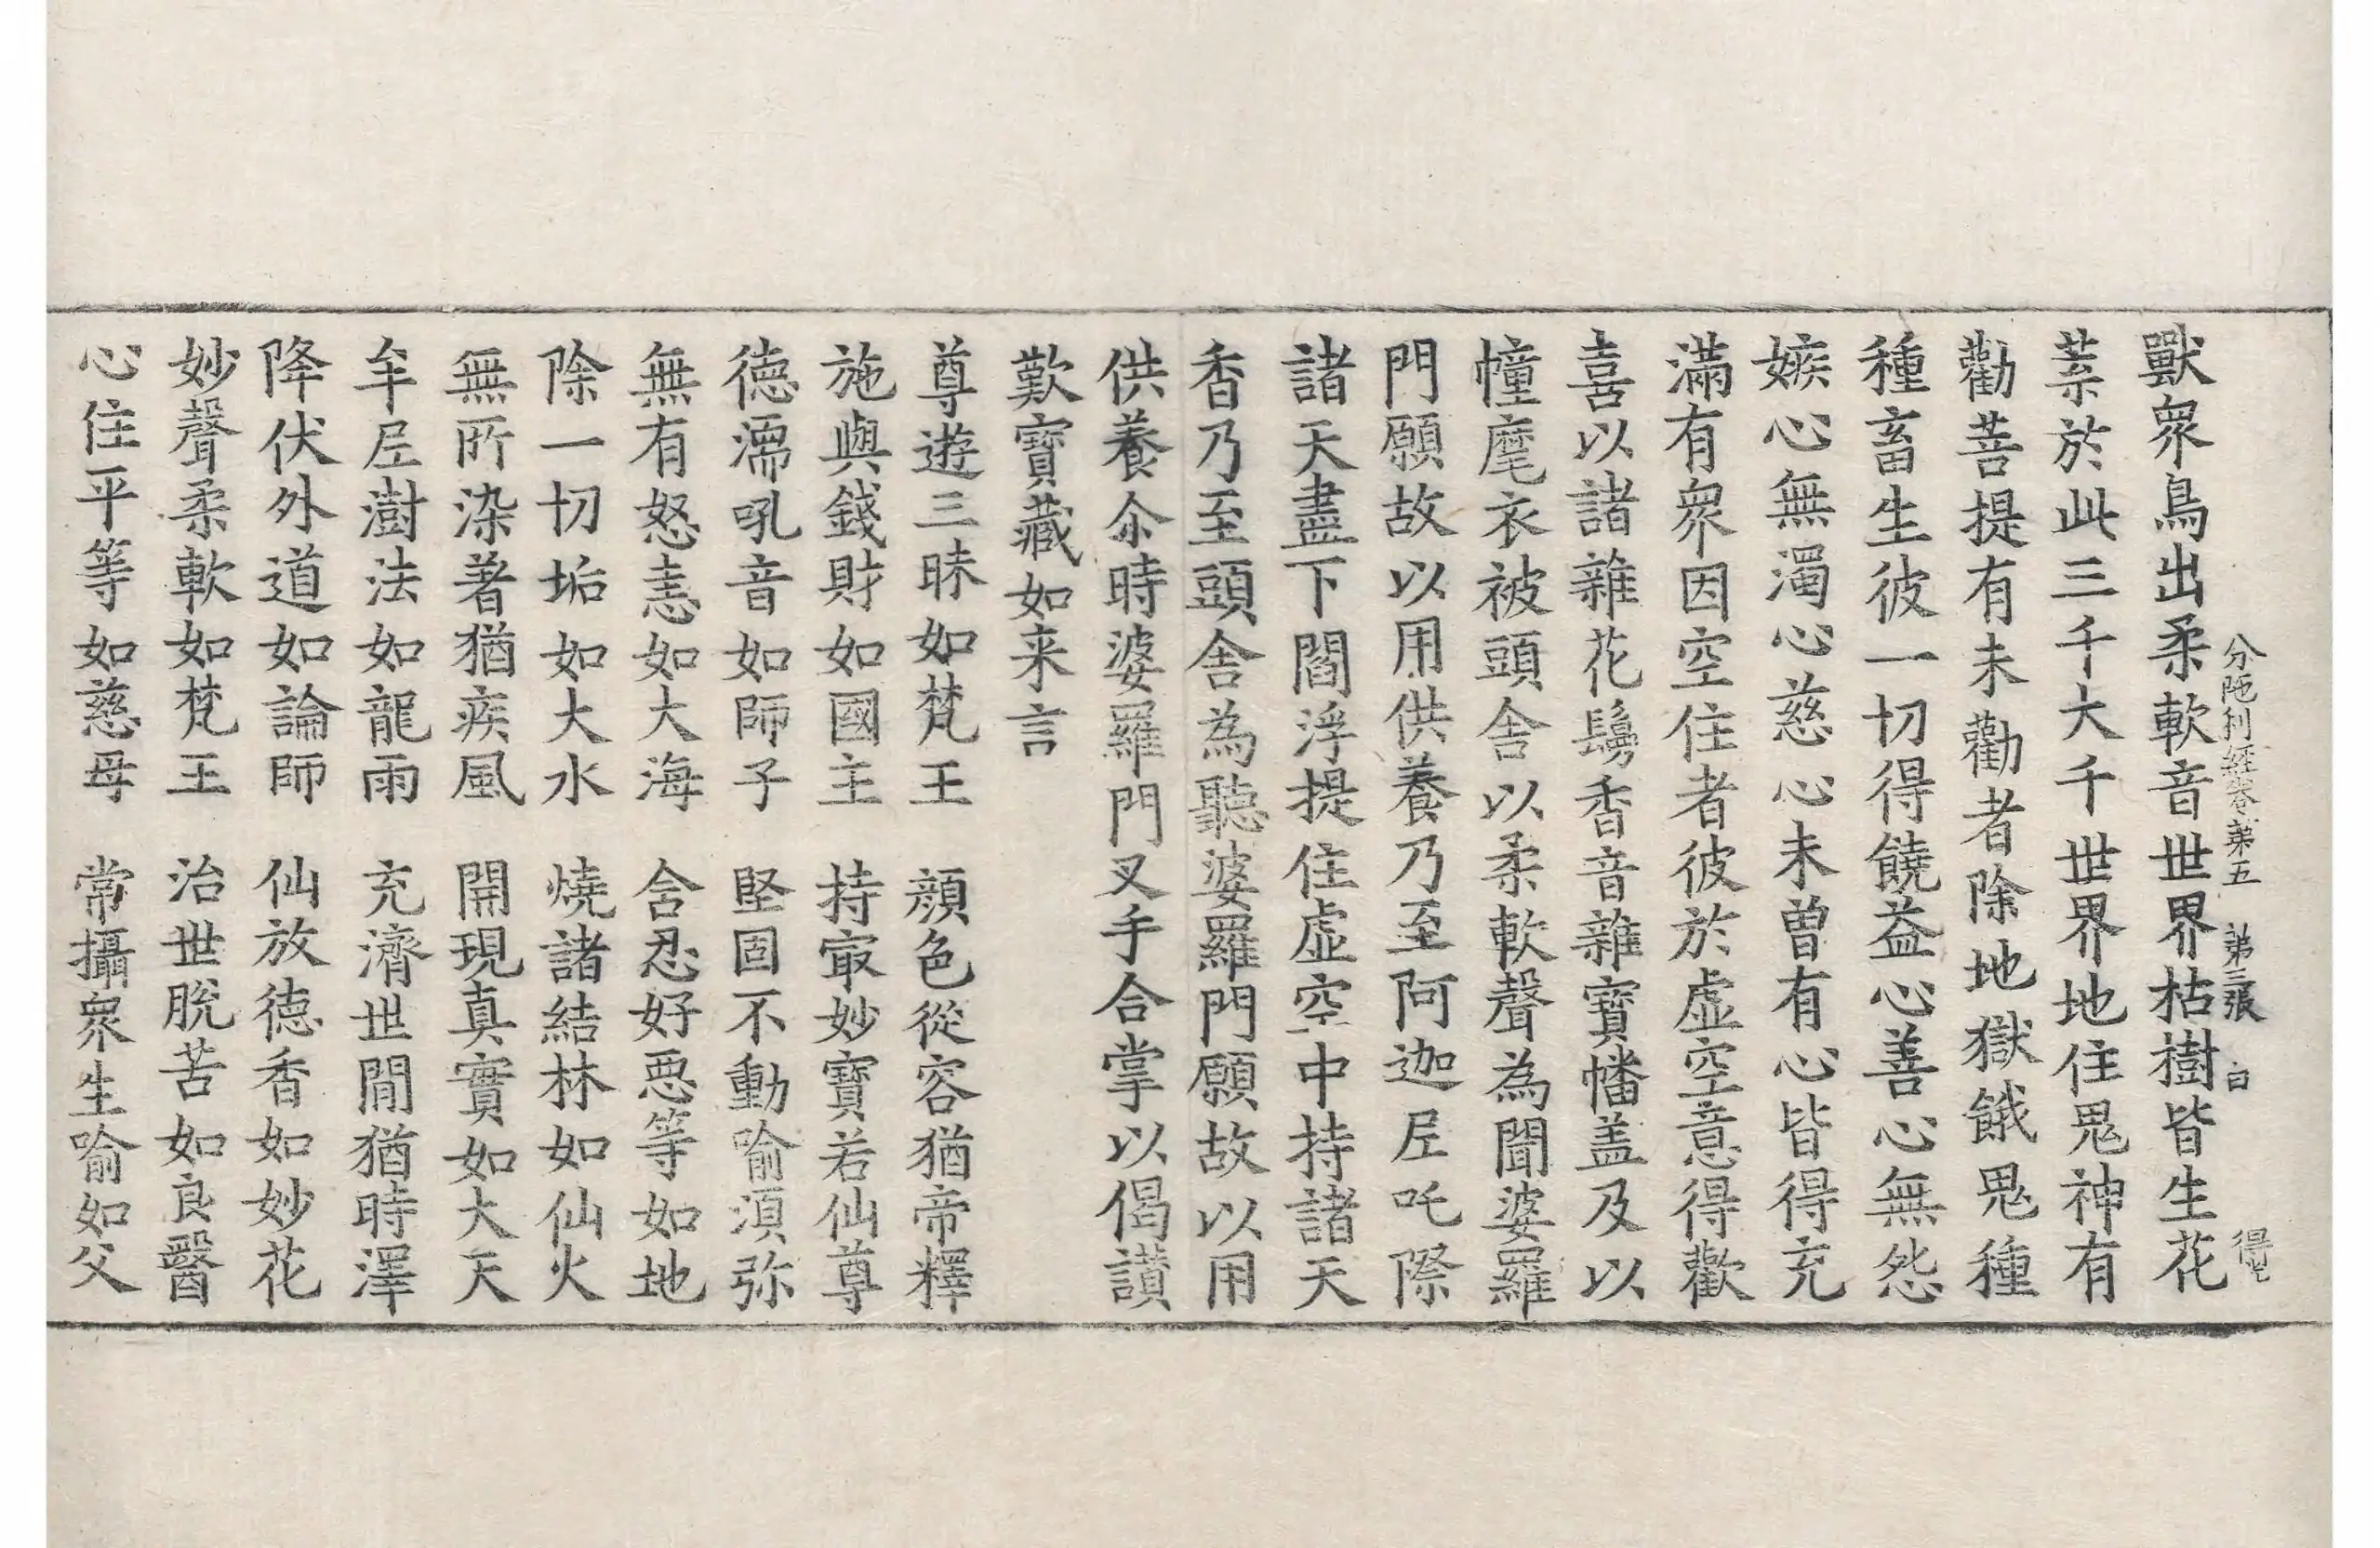 分陁利經卷第五 第三張 白 得
獸衆鳥出柔軟音世界枯樹皆生花
菓於此三千大千世界地住鬼神有
勸菩提有未勸者除地獄餓鬼種
種畜生彼一切得饒益心善心無怨
嫉心無濁心慈心未曽有心皆得充
滿有衆因空住者彼於虛空意得歡
喜以諸雜花鬘香音雜寶幡盖及以
幢麾衣被頭舍以柔軟聲為聞婆羅
門願故以用供養乃至阿迦𡰱吒際
諸天盡下閻浮提住虛空中持諸天
香乃至頭舍為聽婆羅門願故以用
供養尒時婆羅門叉手合掌以偈讃
歎寶藏如来言
尊遊三昧如梵王 顔色從容猶帝釋
施與錢財如國主 持㝡妙寶若仙尊
德濡吼音如師子 堅固不動喻湏弥
無有怒恚如大海 含忍好惡等如地
除一切垢如大水 燒諸結林如仙火
無所染著猶疾風 開現真實如大天
牟𡰱澍法如龍雨 充濟世間猶時澤
降伏外道如論師 仙放德香如妙花
妙聲柔軟如梵王 治世脫苦如良醫
心住平等如慈母 常攝衆生喻如父